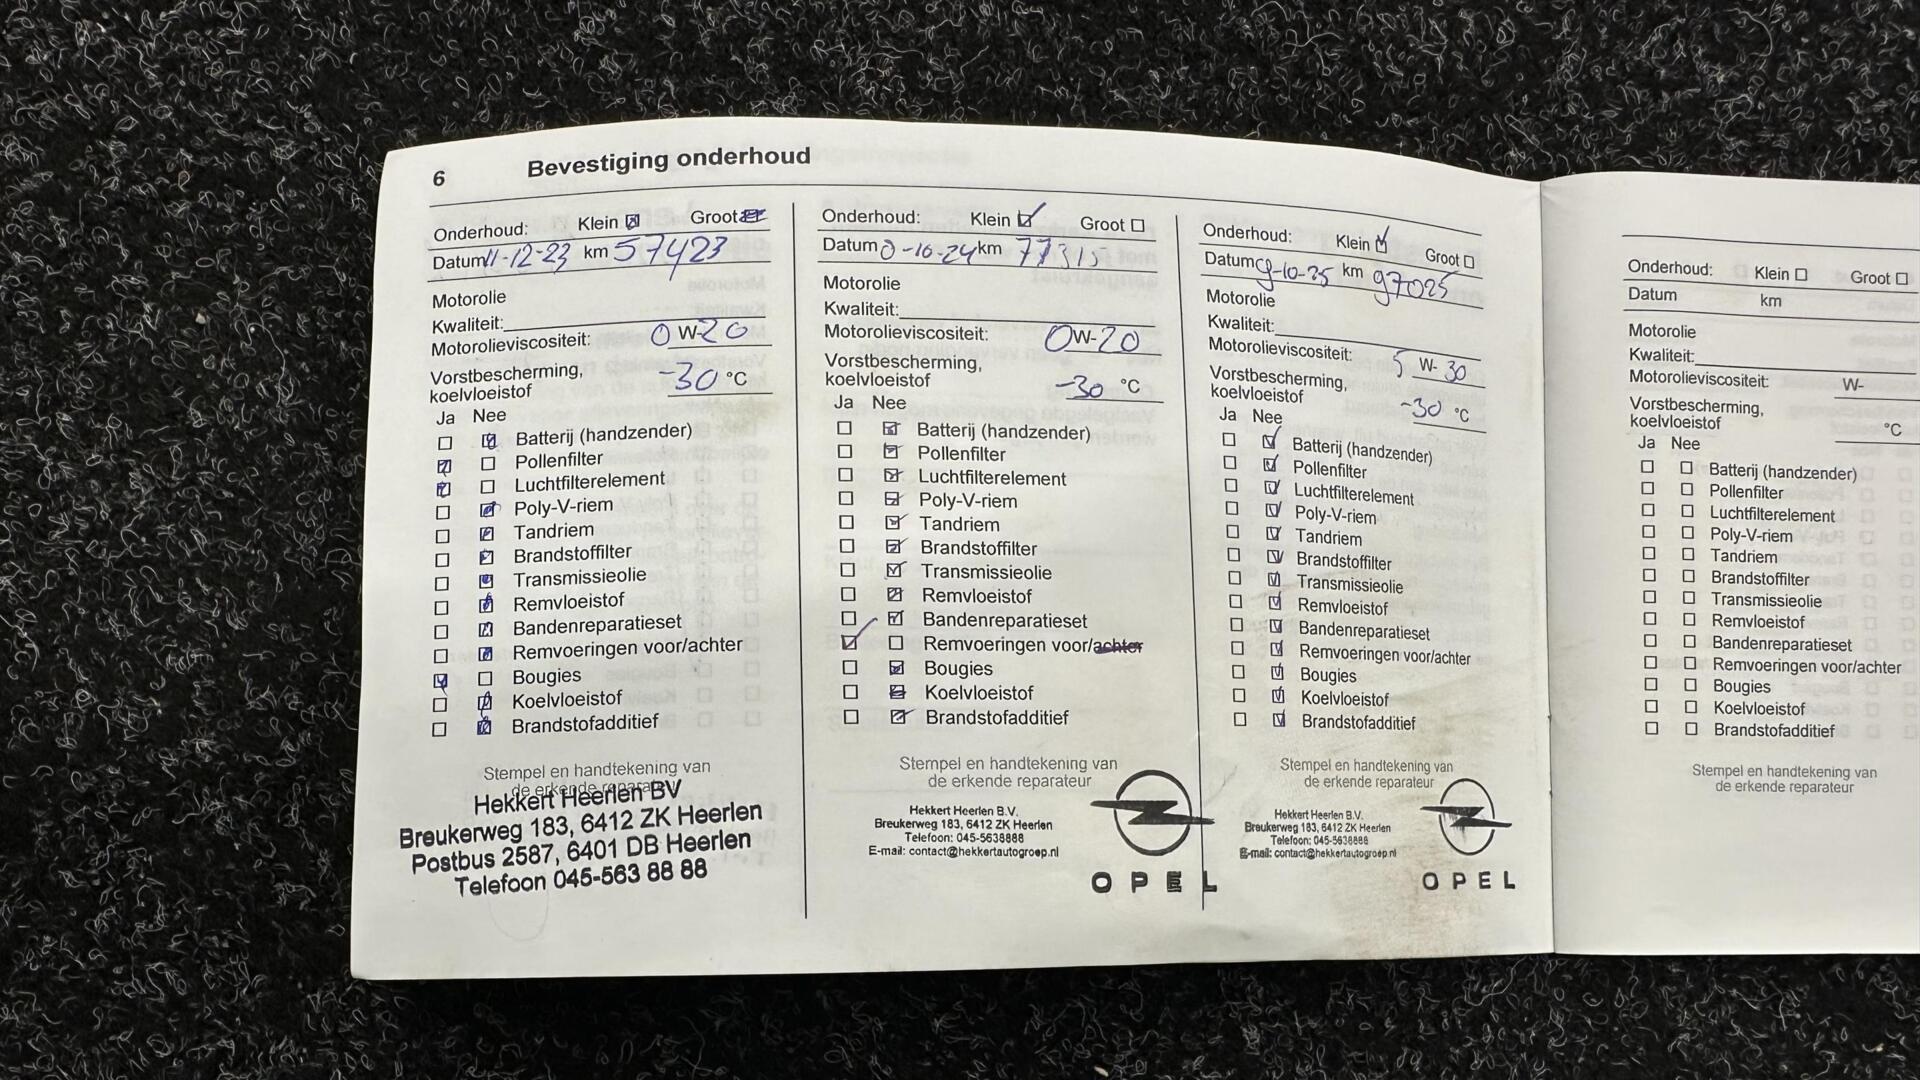 6 Bevestiging onderhoud
Onderhoud: Klein Groot
Datum 11-12-23 km 57423
Motorolie
Kwaliteit:
Motorolieviscositeit: 0 W-20
Vorstbescherming,
koelvloeistof -30 °C
Ja Nee
Batterij (handzender)
Pollenfilter
Luchtfilterelement
Poly-V-riem
Tandriem
Brandstoffilter
Transmissieolie
Remvloeistof
Bandenreparatieset
Remvoeringen voor/achter
Bougies
Koelvloeistof
Brandstofadditief
Stempel en handtekening van
de erkende reparateur
Hekkert Heerlen BV
Breukerweg 183, 6412 ZK Heerlen
Postbus 2587, 6401 DB Heerlen
Telefoon 045-563 88 88
Onderhoud: Klein Groot
Datum 0-10-24 km 77315
Motorolie
Kwaliteit:
Motorolieviscositeit: 0W-20
Vorstbescherming,
koelvloeistof -30 °C
Ja Nee
Batterij (handzender)
Pollenfilter
Luchtfilterelement
Poly-V-riem
Tandriem
Brandstoffilter
Transmissieolie
Remvloeistof
Bandenreparatieset
Remvoeringen voor/achter
Bougies
Koelvloeistof
Brandstofadditief
Stempel en handtekening van
de erkende reparateur
Hekkert Heerlen B.V.
Breukerweg 183, 6412 ZK Heerlen
Telefoon: 045-5638888
E-mail: contact@hekkertautogroep.nl
OPEL
Onderhoud: Klein Groot
Datum 9-10-25 km 97025
Motorolie
Kwaliteit:
Motorolieviscositeit: 5 W-30
Vorstbescherming,
koelvloeistof -30 °C
Ja Nee
Batterij (handzender)
Pollenfilter
Luchtfilterelement
Poly-V-riem
Tandriem
Brandstoffilter
Transmissieolie
Remvloeistof
Bandenreparatieset
Remvoeringen voor/achter
Bougies
Koelvloeistof
Brandstofadditief
Stempel en handtekening van
de erkende reparateur
Hekkert Heerlen B.V.
Breukerweg 183, 6412 ZK Heerlen
Telefoon: 045-5638888
E-mail: contact@hekkertautogroep.nl
OPEL
Onderhoud: Klein Groot
Datum km
Motorolie
Kwaliteit:
Motorolieviscositeit: W-
Vorstbescherming,
koelvloeistof °C
Ja Nee
Batterij (handzender)
Pollenfilter
Luchtfilterelement
Poly-V-riem
Tandriem
Brandstoffilter
Transmissieolie
Remvloeistof
Bandenreparatieset
Remvoeringen voor/achter
Bougies
Koelvloeistof
Brandstofadditief
Stempel en handtekening van
de erkende reparateur